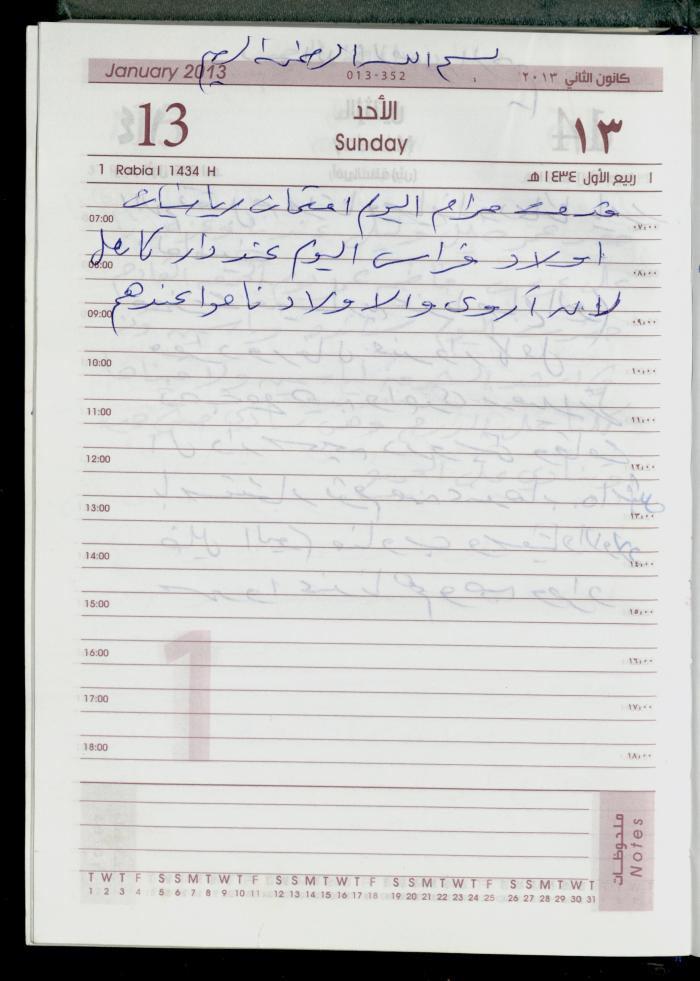 بسم الله الرحمن الرحيم
January 2013 013-352 كانون الثاني ٢٠١٣
13 الأحد ١٣
Sunday
1 Rabia I 1434 H ١ ربيع الأول ١٤٣٤ هـ
قدمت مرام اليوم امتحان رياضيات
07:00 ٠٧,٠٠
اولاد فراس اليوم عند دار كامل
08:00 ٠٨,٠٠
لانه أروى والاولاد ناموا عندهم
09:00 ٠٩,٠٠
10:00 ١٠,٠٠
11:00 ١١,٠٠
12:00 ١٢,٠٠
13:00 ١٣,٠٠
14:00 ١٤,٠٠
15:00 ١٥,٠٠
16:00 ١٦,٠٠
1
17:00 ١٧,٠٠
18:00 ١٨,٠٠
ملحوظات
Notes
T W T F S S M T W T F S S M T W T F S S M T W T F S S M T W T
1 2 3 4 5 6 7 8 9 10 11 12 13 14 15 16 17 18 19 20 21 22 23 24 25 26 27 28 29 30 31